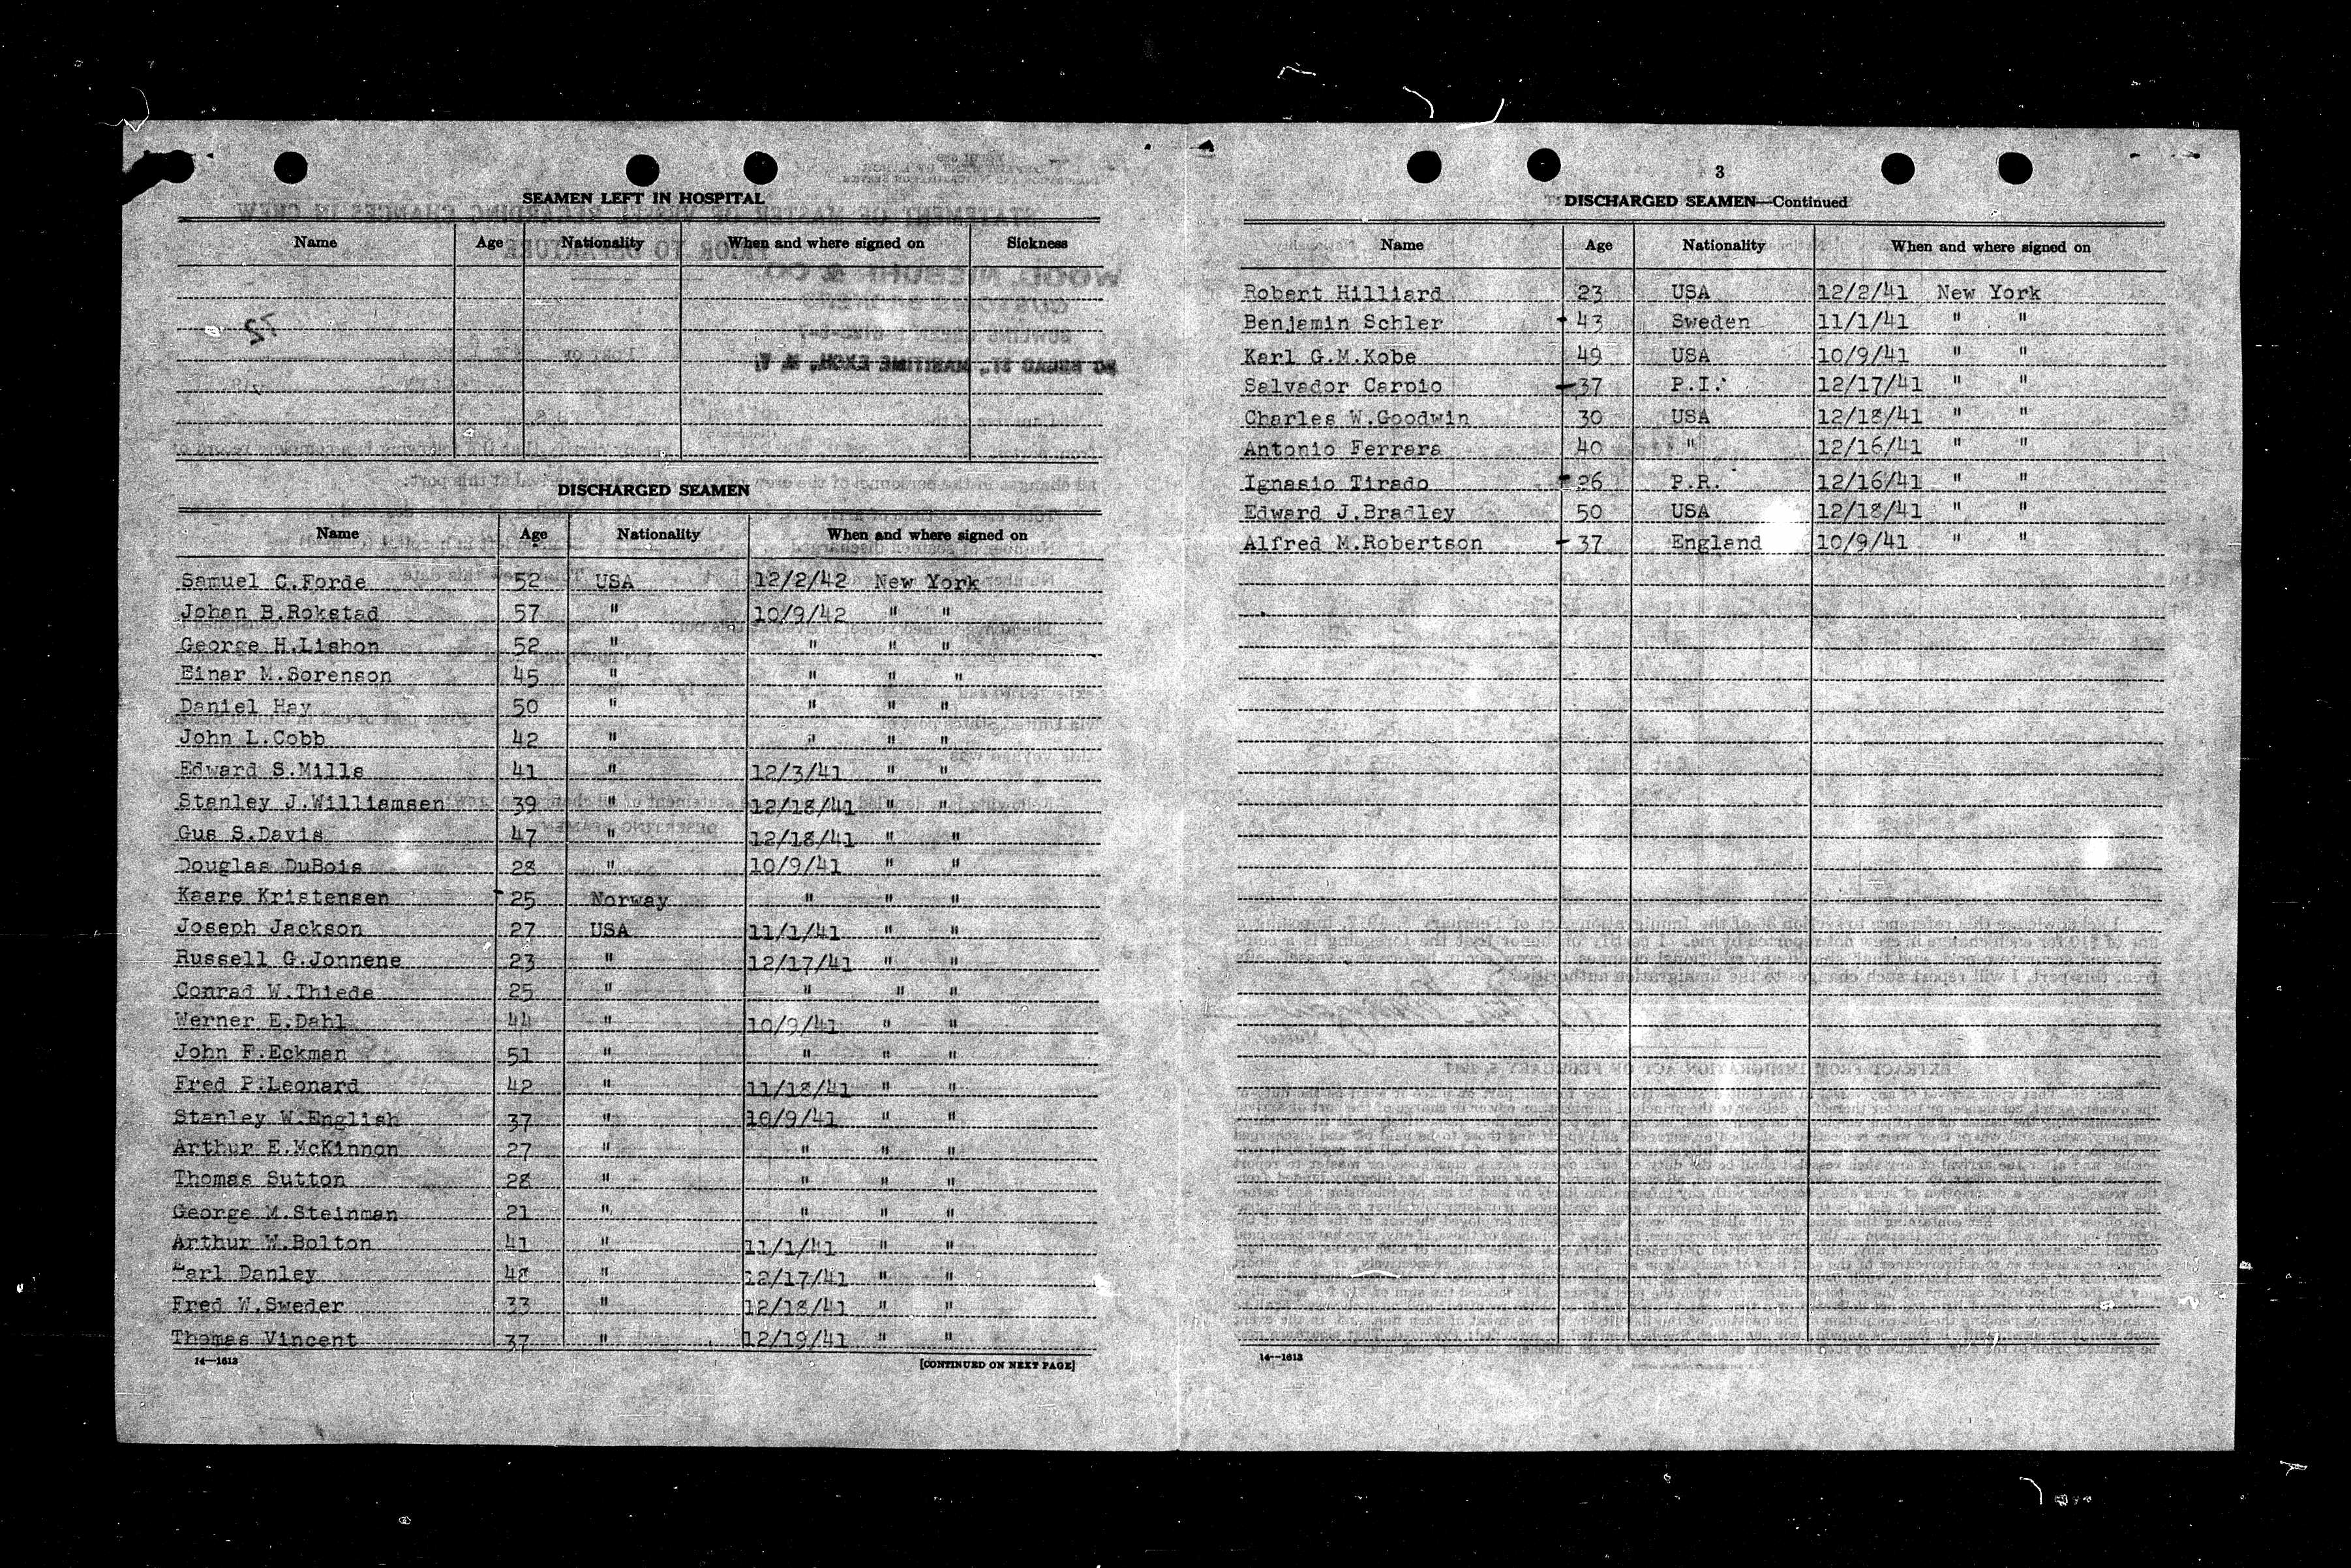 SEAMEN LEFT IN HOSPITAL
Name Age Nationality When and where signed on Sickness
72
DISCHARGED SEAMEN
Name Age Nationality When and where signed on
Samuel C.Forde 52 USA 12/2/42 New York
Johan B.Rokstad 57 " 10/9/42 " "
George H.Lishon 52 " " " "
Einar M.Sorenson 45 " " " "
Daniel Hay 50 " " " "
John L.Cobb 42 " " " "
Edward S.Mills 41 " 12/3/41 " "
Stanley J.Williamsen 39 " 12/18/41 " "
Gus S.Davis 47 " 12/18/41 " "
Douglas DuBois 28 " 10/9/41 " "
Kaare Kristensen 25 Norway " " "
Joseph Jackson 27 USA 11/1/41 " "
Russell G.Jonnene 23 " 12/17/41 " "
Conrad W.Thiede 25 " " " "
Werner E.Dahl 44 " 10/9/41 " "
John F.Eckman 51 " " " "
Fred P.Leonard 42 " 11/18/41 " "
Stanley W.English 37 " 10/9/41 " "
Arthur E.McKinnon 27 " " " "
Thomas Sutton 28 " " " "
George M.Steinman 21 " " " "
Arthur W.Bolton 41 " 11/1/41 " "
Earl Danley 48 " 12/17/41 " "
Fred W.Sweder 33 " 12/18/41 " "
Thomas Vincent 37 " 12/19/41 " "
14—1613 [CONTINUED ON NEXT PAGE]
3
DISCHARGED SEAMEN—Continued
Name Age Nationality When and where signed on
Robert Hilliard 23 USA 12/2/41 New York
Benjamin Schler 43 Sweden 11/1/41 " "
Karl G.M.Kobe 49 USA 10/9/41 " "
Salvador Carpio 37 P.I. 12/17/41 " "
Charles W.Goodwin 30 USA 12/18/41 " "
Antonio Ferrara 40 " 12/16/41 " "
Ignasio Tirado 26 P.R. 12/16/41 " "
Edward J.Bradley 50 USA 12/18/41 " "
Alfred M.Robertson 37 England 10/9/41 " "
14—1613